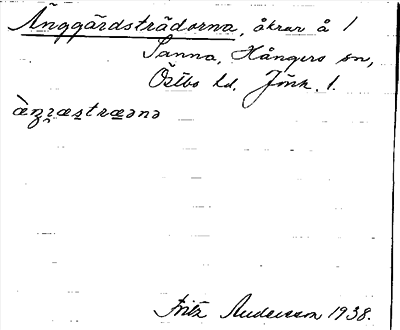 Änggärdsträdorna, åkrar å 1
Sanna, Hångers sn,
Östbo hd. Jönk. l.
Fritz Andersson 1938.